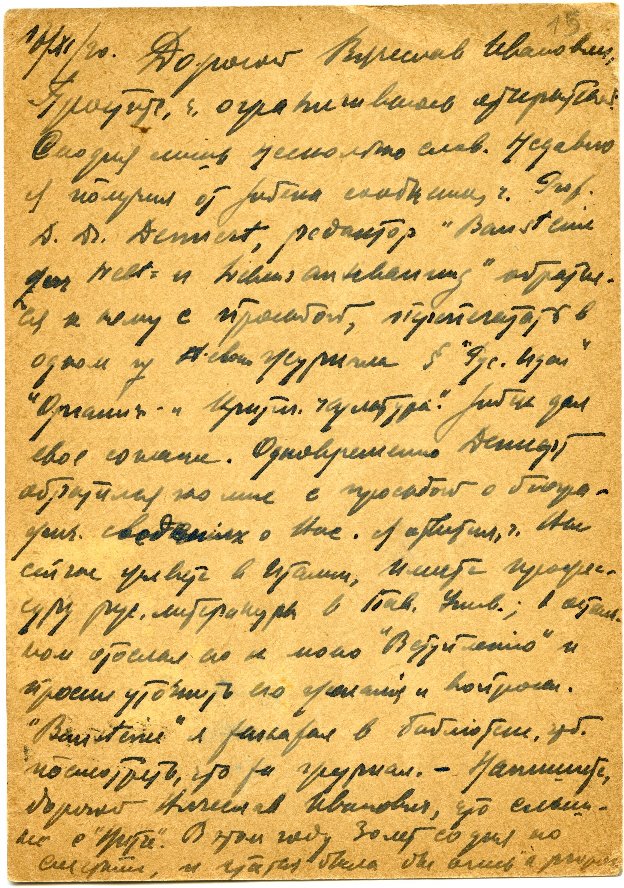 15
18/XI/30. Дорогой Вячеслав Иванович,
Простите, ч. ограничиваюсь открыткой.
Сегодня лишь несколько слов. Недавно
я получил от Зибека сообщение, ч. Prof.
D. Dr. Dennert, редактор "Bausteine
zur Welt= u Lebensanschauung" обратил-
ся к нему с просьбой, перепечатать в
одном из № своего журнала § "Рус. идеи"
"Органич. и Критич. культура". Зибек дал
свое согласие. Одновременно Dennert
обратился ко мне с просьбой о биогра-
фич. сведениях о Вас. Я ответил, ч. Вы
сейчас живете в Италии, имеете профес-
суру рус. литературы в Пав. Унив.; в осталь-
ном отослал его к моему "Вступлению" и
просил уточнить его желания и вопросы.
"Bausteine" я заказал в библиотеке, чтб.
посмотреть, что за журнал. – Напишите,
дорогой Вячеслав Иванович, что слыш-
но с . В этом году
и статья была бы очень